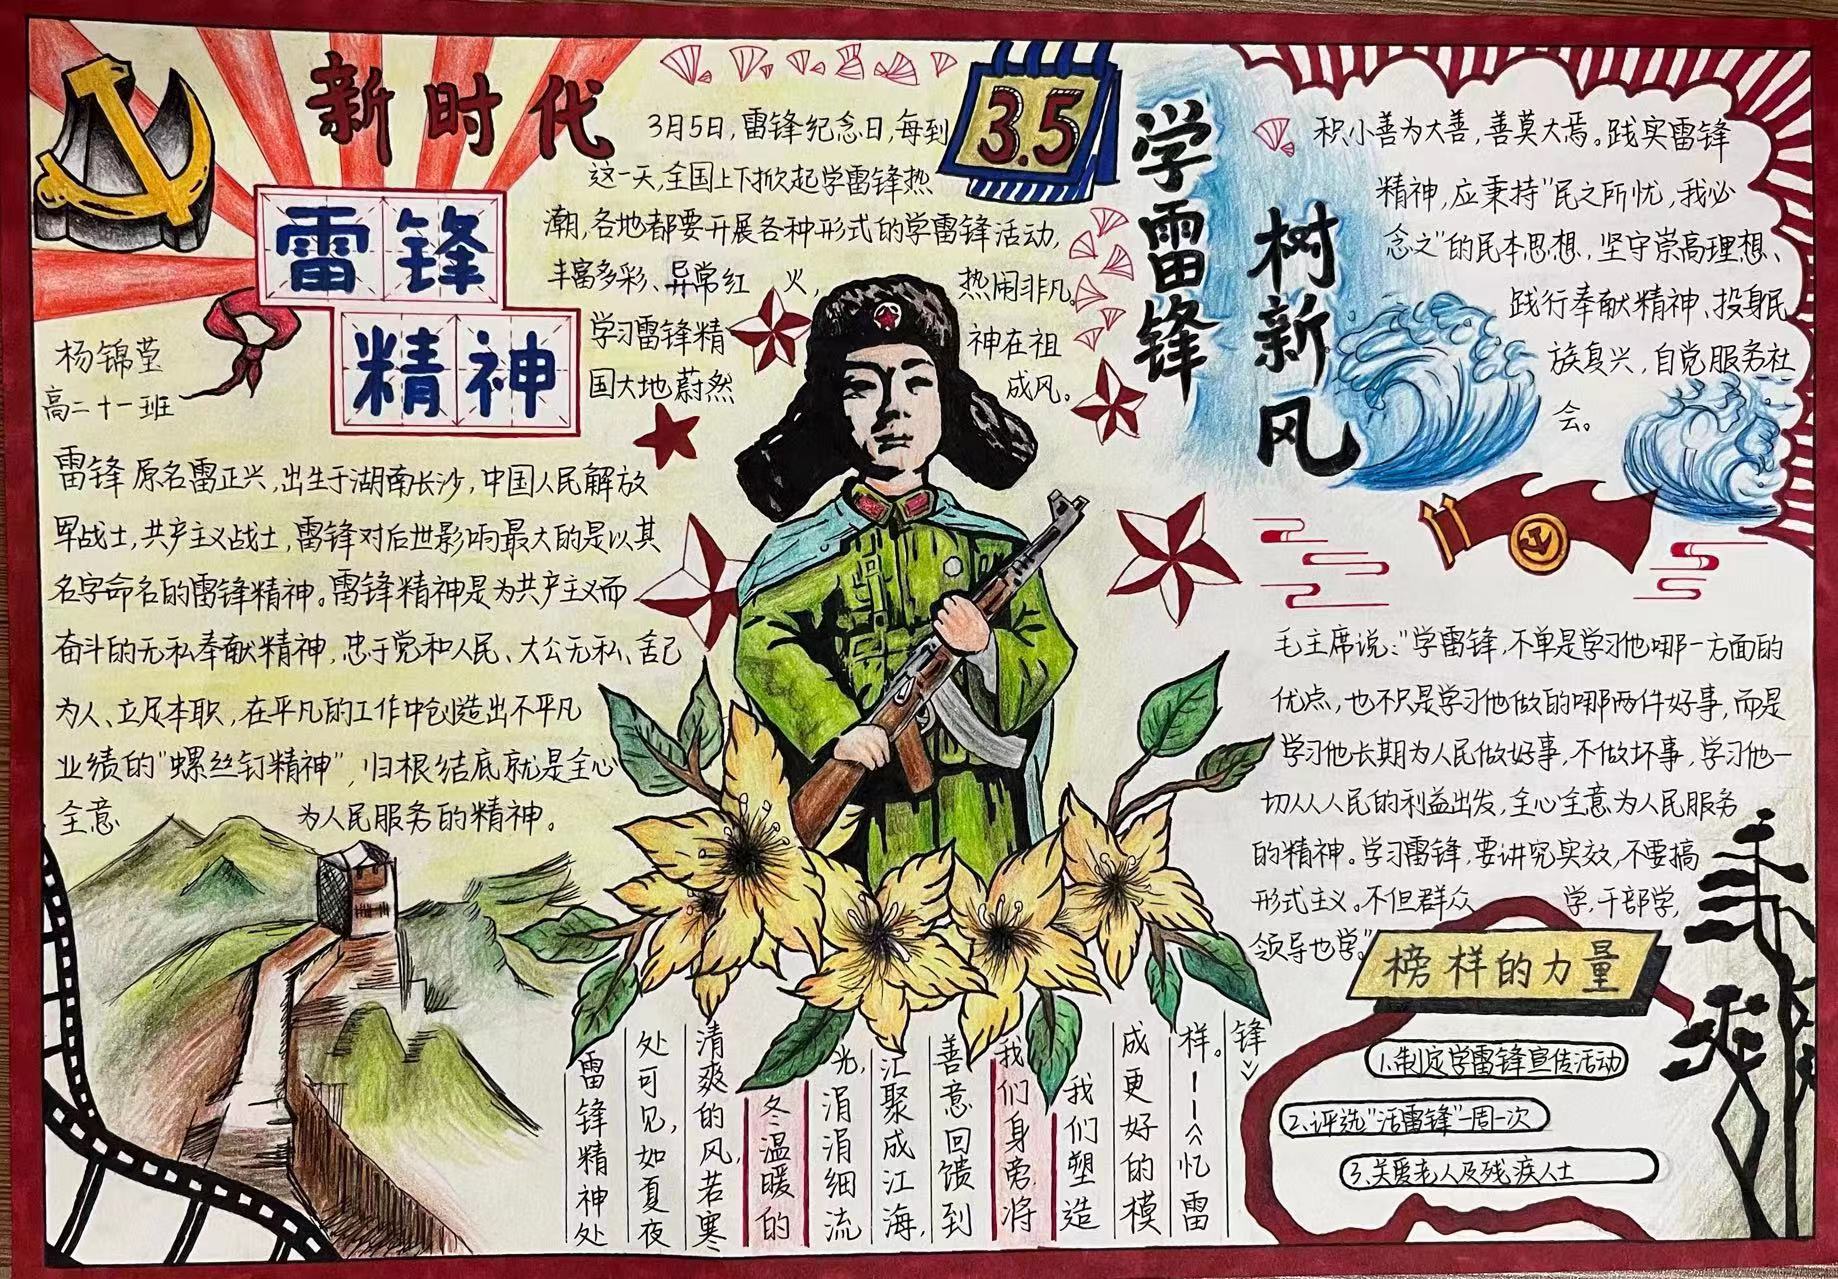 新时代
雷锋
精神
杨锦莹
高二十一班
3月5日,雷锋纪念日,每到
这一天,全国上下掀起学雷锋热
潮,各地都要开展各种形式的学雷锋活动,
丰富多彩、异常红火,热闹非凡。
学习雷锋精神在祖
国大地蔚然成风。
3.5
学雷锋
树新风
积小善为大善,善莫大焉。践实雷锋
精神,应秉持"民之所忧,我必
念之"的民本思想,坚守崇高理想、
践行奉献精神、投身民
族复兴,自觉服务社
会。
雷锋原名雷正兴,出生于湖南长沙,中国人民解放
军战士,共产主义战士,雷锋对后世影响最大的是以其
名字命名的雷锋精神。雷锋精神是为共产主义而
奋斗的无私奉献精神,忠于党和人民、大公无私、舌己
为人、立足本职,在平凡的工作中创造出不平凡
业绩的"螺丝钉精神",归根结底就是全心
全意为人民服务的精神。
毛主席说:"学雷锋,不单是学习他哪一方面的
优点,也不只是学习他做的哪两件好事,而是
学习他长期为人民做好事,不做坏事,学习他一
切从人民的利益出发,全心全意为人民服务
的精神。学习雷锋,要讲究实效,不要搞
形式主义。不但群众学,干部学,
领导也学。"
榜样的力量
1.制定学雷锋宣传活动
2.评选"活雷锋"一周一次
3.关爱老人及残疾人士
雷锋精神处
处可见,如夏夜
清爽的风,若寒
冬温暖的
光,涓涓细流
汇聚成江海,
善意回馈到
我们身旁,将
我们塑造
成更好的模
样。——《忆雷
锋》